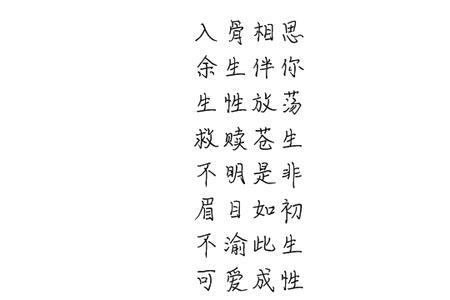 入骨相思
余生伴你
生性放荡
救赎苍生
不明是非
眉目如初
不渝此生
可爱成性